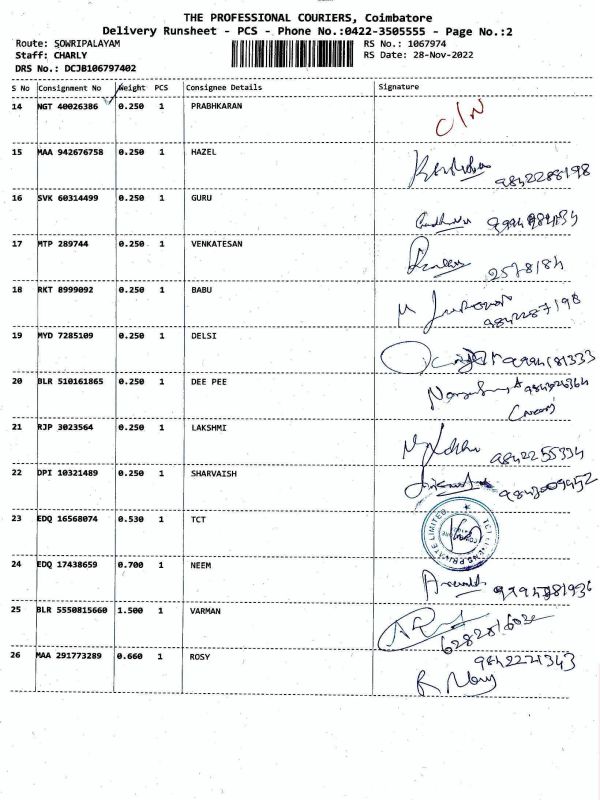 THE PROFESSIONAL COURIERS, Coimbatore
Delivery Runsheet - PCS - Phone No.:0422-3505555 - Page No.:2
Route: SOWRIPALAYAM RS No.: 1067974
Staff: CHARLY RS Date: 28-Nov-2022
DRS No.: DCJB106797402
S No Consignment No Weight PCS Consignee Details Signature
14 NGT 40026386 0.250 1 PRABHKARAN C/N
15 MAA 942676758 0.250 1 HAZEL 9842288198
16 SVK 60314499 0.250 1 GURU
17 MTP 289744 0.250 1 VENKATESAN
18 RKT 8999092 0.250 1 BABU 9842287198
19 MYD 7285109 0.250 1 DELSI 9994181333
20 BLR 510161865 0.250 1 DEE PEE
21 RJP 3023564 0.250 1 LAKSHMI 9842255334
22 DPI 10321489 0.250 1 SHARVAISH 9843009452
23 EDQ 16568074 0.530 1 TCT
24 EDQ 17438659 0.700 1 NEEM
25 BLR 5550815660 1.500 1 VARMAN 6282816032
26 MAA 291773289 0.660 1 ROSY 9842221343
R Mary